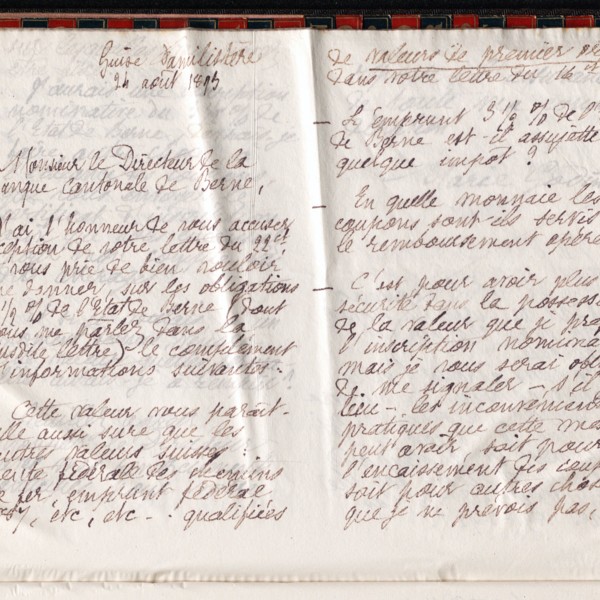 Guise Familistère
24 août 1895
Monsieur le Directeur de la
anque cantonale de Berne,
'ai l'honneur de vous accuser
ception de votre lettre du 22 ct
vous prie de bien vouloir
e donner, sur les obligations
½ % de l'Etat de Berne (dont
ous me parlez dans la
usdite lettre) le complément
'informations suivantes.
Cette valeur vous paraît-
elle aussi sûre que les
autres valeurs suisses :
ente fédérale des chemins
e fer, emprunt fédéral
, etc, etc - qualifiées
de valeurs de premier
dans votre lettre du 16 ct
— Le emprunt 3 ½ % de l'
de Berne est-il assujetti
quelque impôt ?
— En quelle monnaie les
coupons sont-ils servis
le remboursement opéré
— C'est pour avoir plus
sécurité dans la possess
de la valeur que je pro
l'inscription nomina
mais je vous serai obl
de me signaler - s'il
lieu -, les inconvénient
pratiques que cette m
peut avoir, soit pour
l'encaissement des coup
soit pour autres chos
que je ne prévois pas,